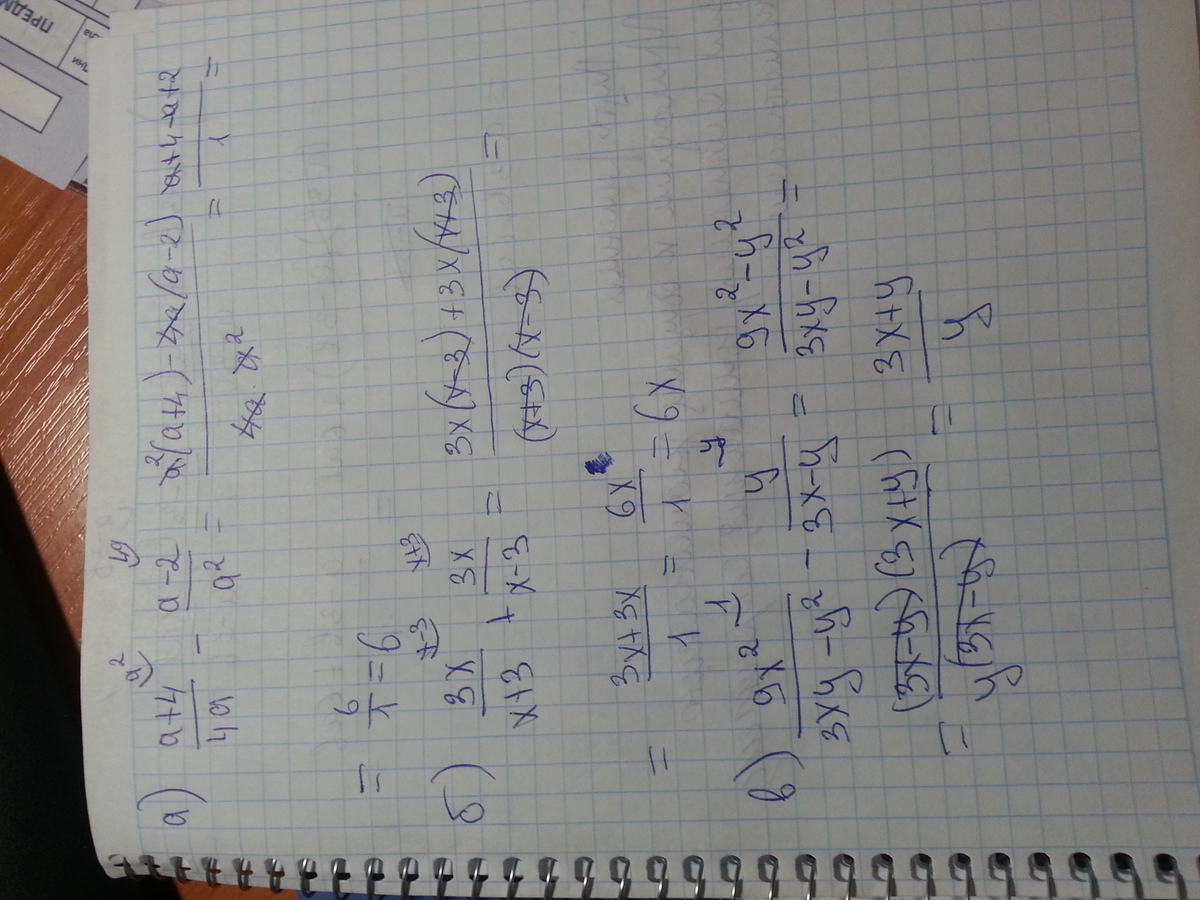 а) (a+4)/(4a) [a²] − (a−2)/(a²) [4a] = (a²(a+4) − 4a(a−2))/(4a · a²) = (a+4−a+2)/1 =
= 6/1 = 6
б) 3x/(x+3) [x−3] + 3x/(x−3) [x+3] = (3x(x−3)+3x(x+3))/((x+3)(x−3)) =
= (3x+3x)/1 = 6x/1 = 6x
в) 9x²/(3xy−y²) [1] − y/(3x−y) [y] = (9x²−y²)/(3xy−y²) =
= ((3x−y)(3x+y))/(y(3x−y)) = (3x+y)/y
ПРЕДМ